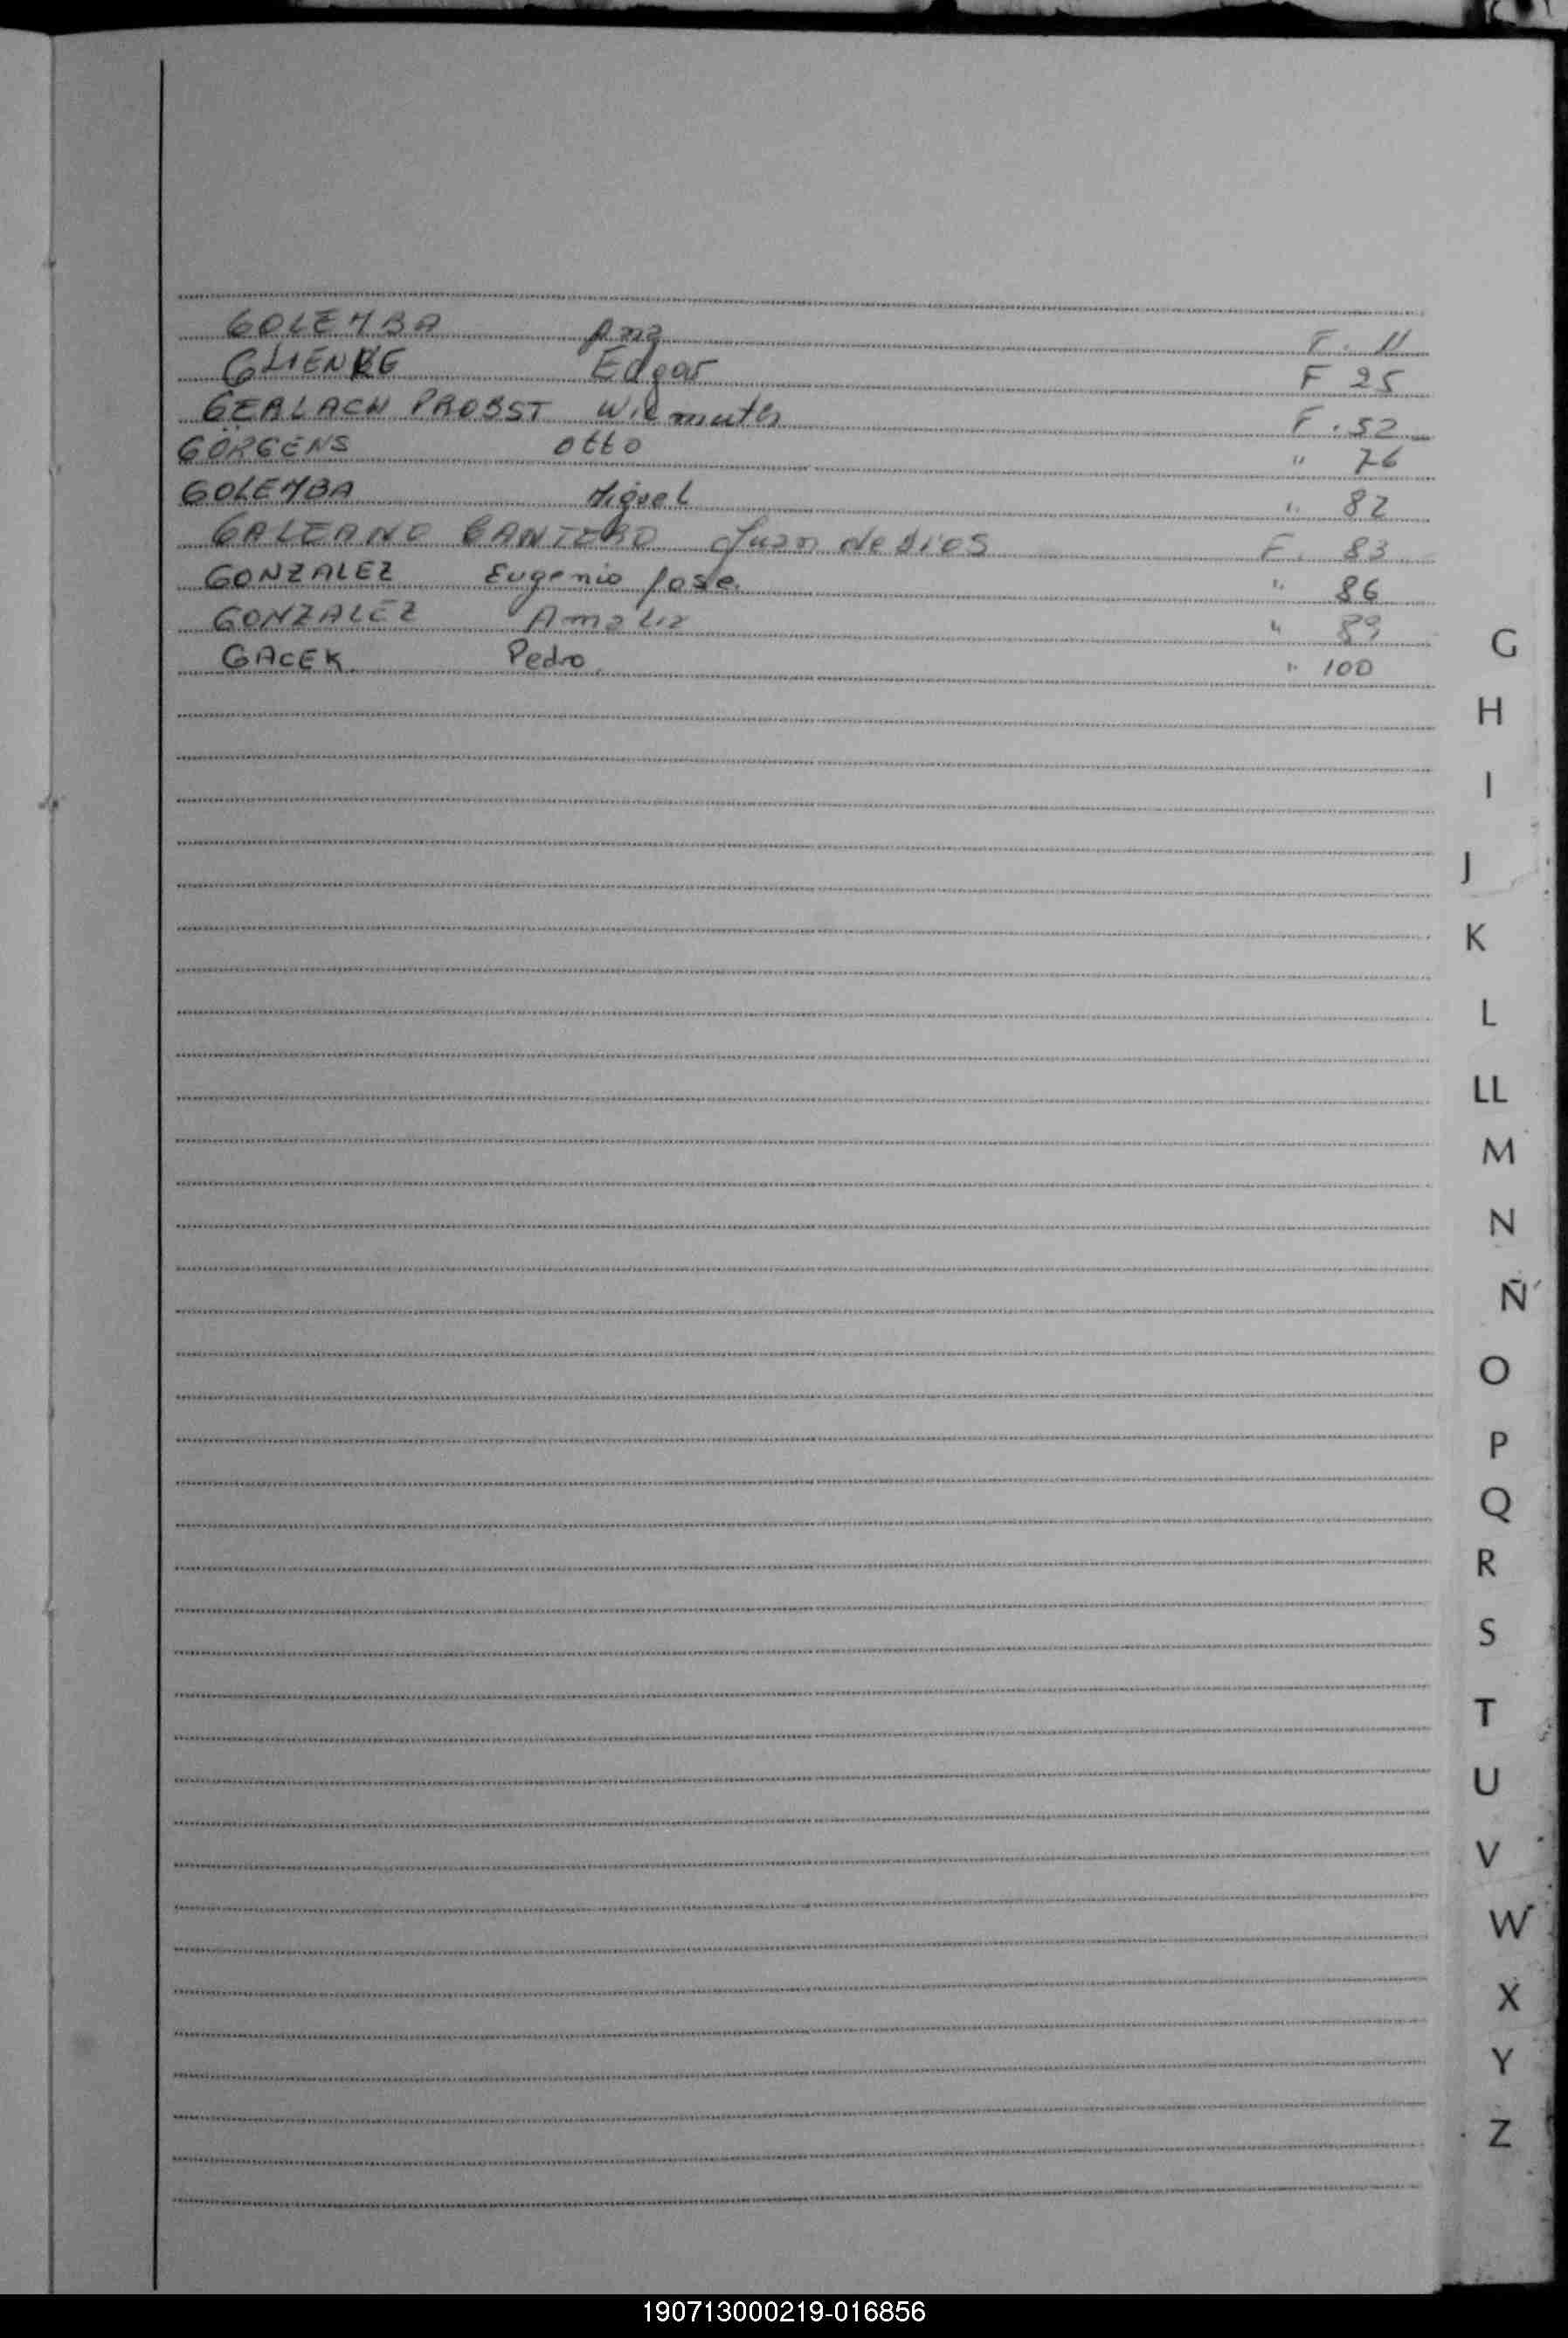 GOLEMBA Ana F. 11
GLIENKE Edgar F 25
GERLACH PROBST Wilmuth F. 52
GÖRGENS Otto " 76
GOLEMBA Miguel " 82
GALEANO CANTERO Juan de Dios F. 83
GONZALEZ Eugenio Jose " 86
GONZALEZ Amalia " 89
GACEK Pedro " 100
G
H
I
J
K
L
LL
M
N
Ñ
O
P
Q
R
S
T
U
V
W
X
Y
Z
190713000219-016856